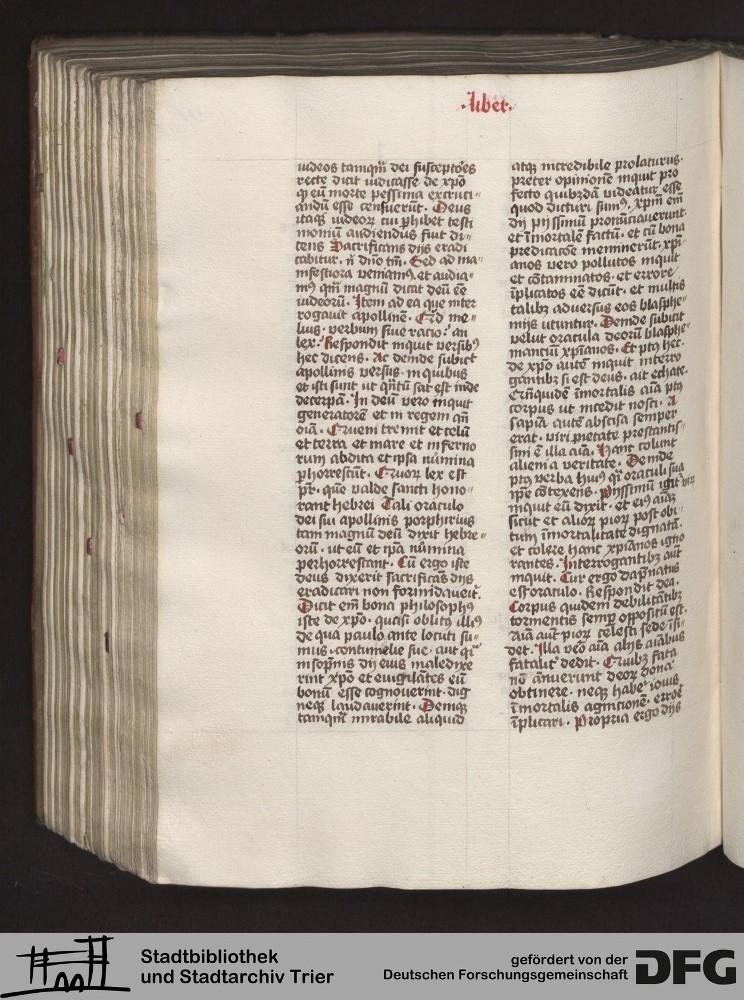 ·liber·
iudeos tamqm̄ dei susceptões
recte dicit iudicasse de xp̄o
qꝫ eū morte pessima excruci-
andū esse censuerūt. Deus
itaqꝫ iudeorꝝ cui ꝑhibet testi
moniū audiendus fuit di-
cens Sacrificans dijs eradi
cabitur. n̄ dn̄o tm̄. Sed ad ma-
nifestiora veniamꝰ. et audia-
mꝰ qm̄ magnū dicat deū eē
iudeorū. Item ad ea que inter
rogavit apollinē. Quid me-
lius. verbum sive racio? an
lex? Respondit inquit versibꝰ
hec dicens. Ac deinde subicit
apollinis versus. in quibus
et isti sunt ut qn̄tū sat est inde
decerpā. In deū vero inquit
generatorē et in regem an̄
oīa. Quem tremit et celū
et terra et mare et inferno
rum abdita et ipsa numina
ꝑhorrescūt. Quorꝝ lex est
pr̄. quē valde sancti hono-
rant hebrei Tali oraculo
dei sui apollinis porphirius
tam magnū deū dixit hebre-
orū. ut eū et ip̄a numina
perhorrescant. Cū ergo iste
deus dixerit sacrificās dijs
eradicari non formidaverit.
Dicit em̄ bona philosophꝰ
iste de xp̄o. quasi oblitꝰ illiꝰ
de qua paulo ante locuti su-
mus. contumelie sue. aut qi
in sopnis dij eius maledixe
rint xp̄o et evigilātes eū
bonū esse cognoverint. dig
neqꝫ laudaverint. Deniqꝫ
tamqm̄ mirabile aliquid
atqꝫ incredibile prolaturus.
preter opinionē inquit pro
fecto quibꝰdā videatur esse
quod dicturi sumꝰ. xpm̄ em̄
dij pijssimū pronūciaverunt
et īmortalē factū. et cū bona
predicacōe meminerūt. xp̄i-
anos vero pollutos inquit
et cōtaminatos. et errore
īplicatos eē dicūt. et multis
talibꝫ adversus eos blasphe-
mijs utuntur. Deinde subicit
velut oracula deorū blasphe-
manciū xp̄ianos. Et ptꝫ hec.
de xp̄o autē inquit interro
gantibꝫ si est deus. ait echate.
Qm̄quidē īmortalis aīa ptꝫ
corpus ut incedit nosti. A
sapīa autē abscisa semper
erat. viri pietate prestantis-
simi ē illa aīa. Hanc colunt
aliena veritate. Deinde
ptꝫ verba huiꝰ qi oraculi sua
ip̄e cōtexens. Pijssimū igit' vir
inquit eū dixit. et eiꝰ aīaꝫ
sicut et aliorꝝ piorꝝ post obi-
tum īmortalitate dignatā.
et colere hanc xp̄ianos igno
rantes. Interrogantibꝫ aūt
inquit. Cur ergo dāpnatus
est oraculo. Respondit dea.
Corpus quidem debilitātibꝫ
tormentis semꝑ oppositū est.
Aīa aūt piorꝝ celesti sede īsi-
det. Illa vēo aīa alijs aīabus
fataliter dedit. Quibꝫ fata
nō annuerunt deorꝝ dona
obtinere. neqꝫ haber' iovis
īmortalis agnitionē. errorē
īplicari. Propria ergo dijs
Stadtbibliothek
und Stadtarchiv Trier
gefördert von der
Deutschen Forschungsgemeinschaft
DFG